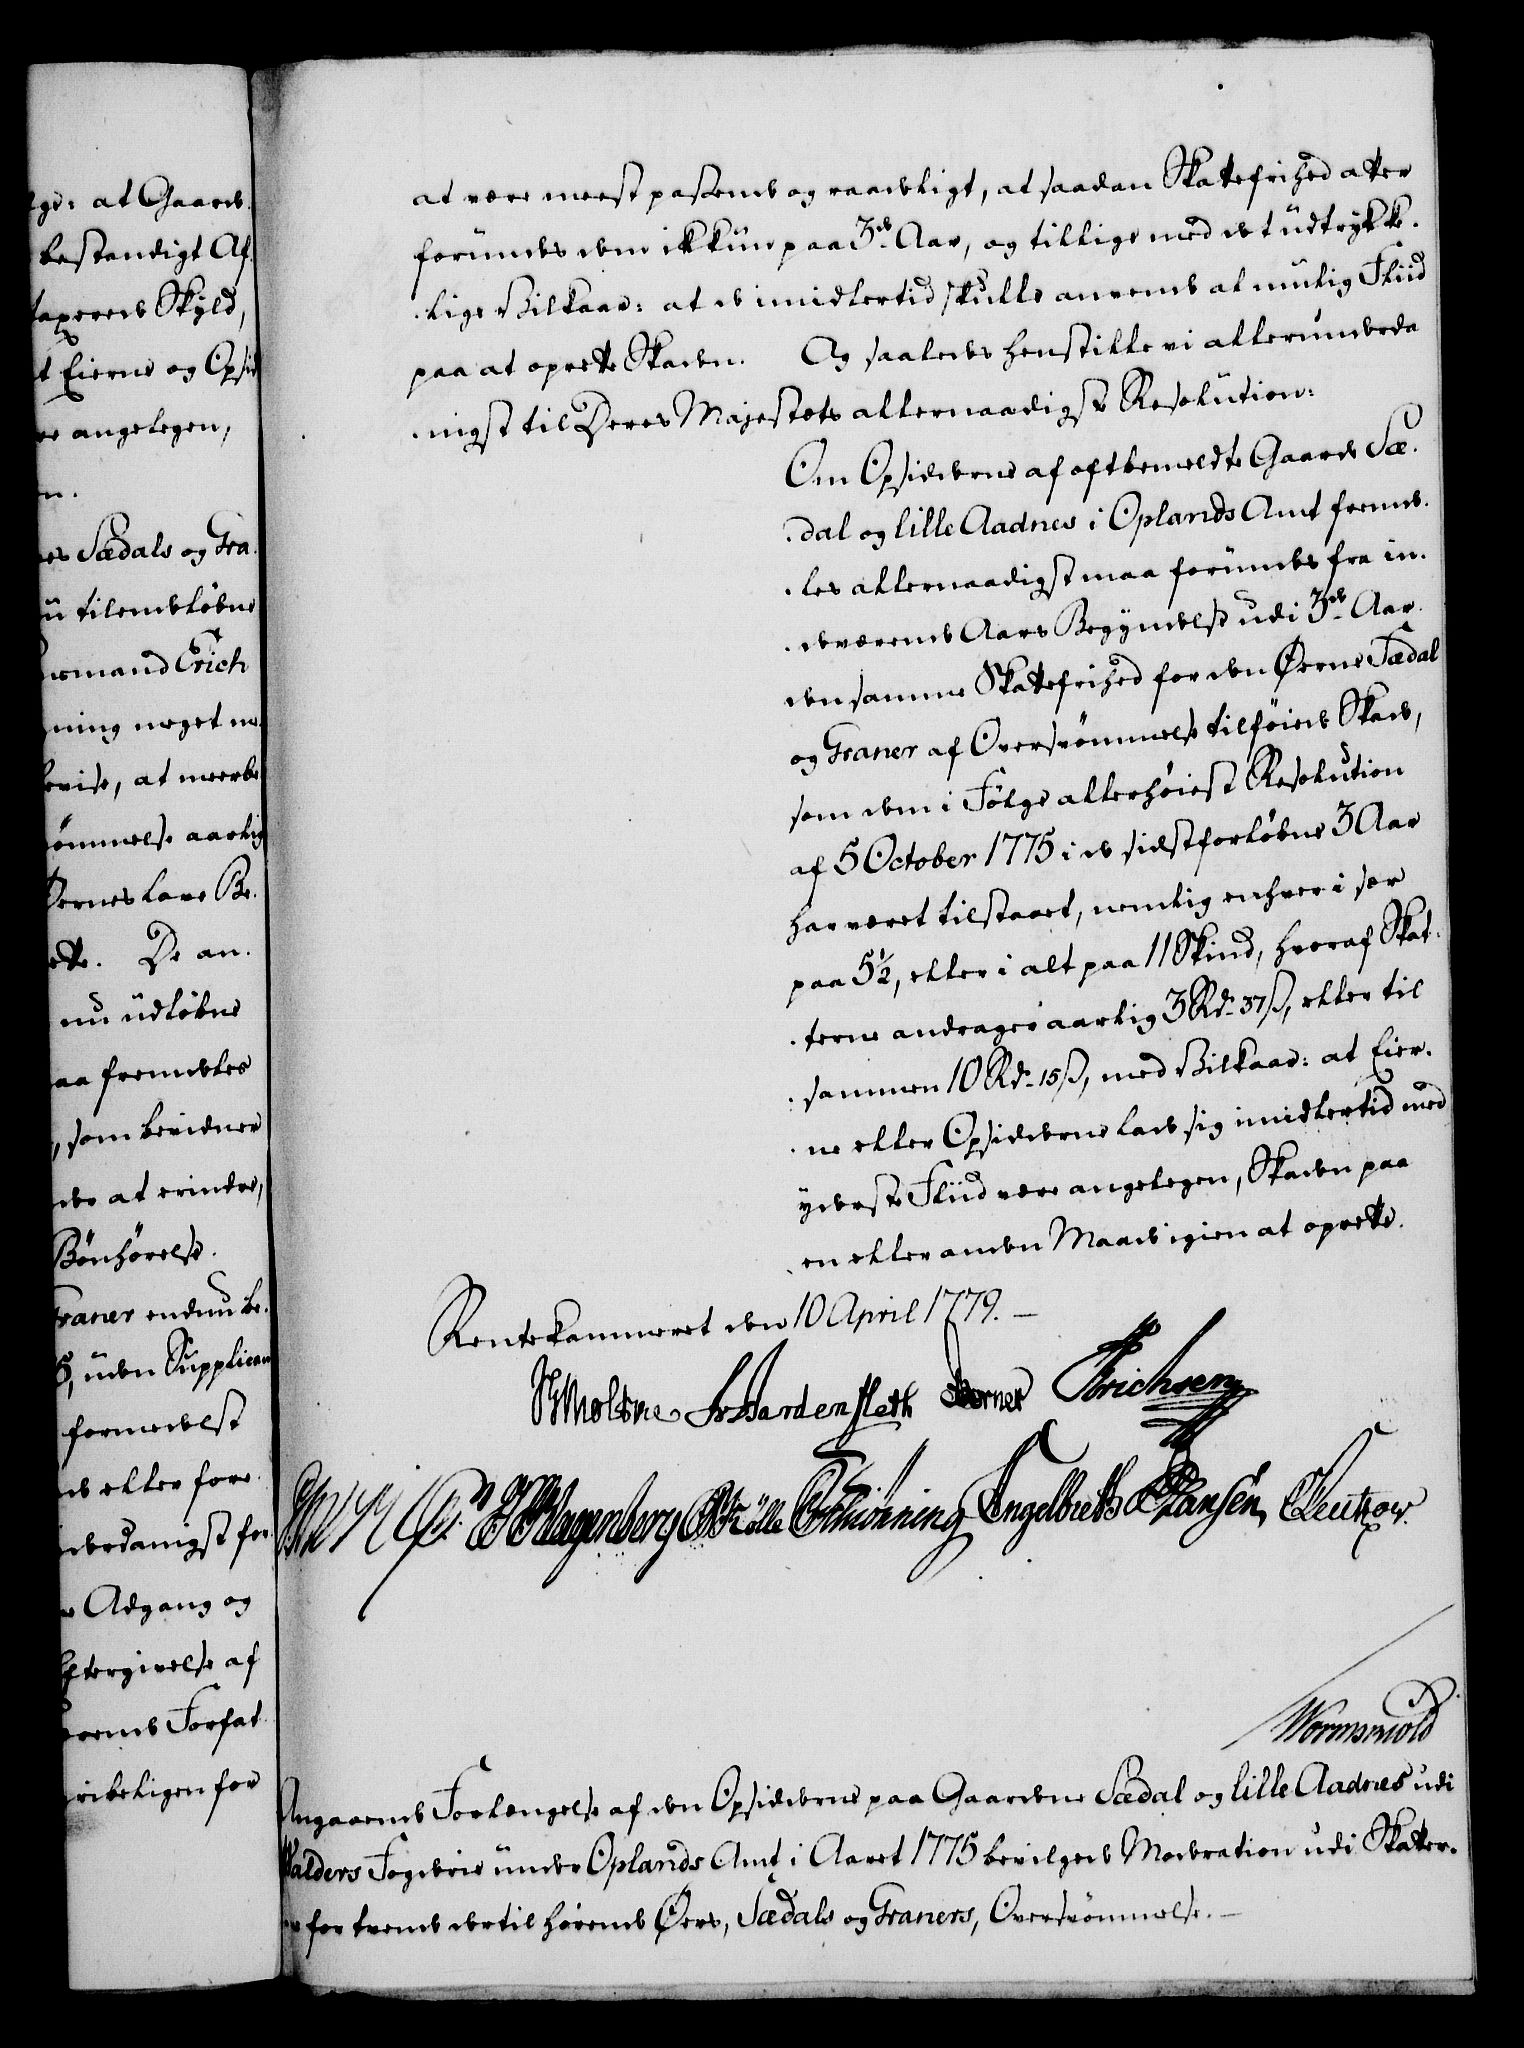 lge: at Gaard.
bestandigt Af.
taxerede Skyld,
t Eierne og Opsid
re angelegen,
n.
es Sædals og Gra.
u tilendeløbne
ormand Erich
ning noget næ.
bevise, at meerbe
ømmelse aarlig
Øernes lave Be.
ette. De an.
nu udløbne
aa fremdeles
, som bevidner
de at erindre,
Bønhørelse.
Graner endnu be.
5, uden Supplican
formedelst
d eller fore
derdanigst for
e Adgang og
Eftergivelse af
erende Forfat.
ribeligen for
at være meest passende og raadeligt, at saadan Skattefrihed atter
forundes dem ikkun paa 3de Aar, og tillige med det udtrykke.
.lige Vilkaar: at de imidlertid skulle anvende al muelig Fliid
paa at oprette Skaden. Og saaledes henstille vi allerunderda
.nigst til Deres Majestæts allernaadigste Resolution:
Om Opsidderne af oftbemeldte Gaarde Sæ.
.dal og lille Aadnes i Oplands Amt fremde.
.les allernaadigst maa forundes fra in.
.deværende Aars Begyndelse udi 3de Aar
den samme Skattefrihed for den Øerne Sædal
og Graner af Oversvømmelse tilføiede Skade,
som dem i Følge allerhøieste Resolution
af 5 October 1775 i de sidstforløbne 3 Aar
har været tilstaaet, nemlig enhver i sær
paa 5½, eller i alt paa 11 Skind, hvoraf Skat.
.terne andrager aarlig 3 Rd. 37 ß, eller til
.sammen 10 Rd. 15 ß, med Vilkaar: at Eier.
.ne eller Opsidderne lade sig imidlertid med
yderste Fliid være angelegen, Skaden paa
en eller anden Maade igien at oprette.
Rentekammeret den 10 April 1779.
Moltke Fr Bardenfleth Berner Erichsen
Wagenberg Trölle Schiönning Engelbreth Hansen Lützow
Wormskiold
Angaaende Forlængelse af den Opsidderne paa Gaardene Sædal og lille Aadnes udi
Walders Fogderie under Oplands Amt i Aaret 1775 bevilgede Moderation udi Skatter.
for tvende dertil hørende Øers, Sædals og Graners, Oversvømmelse.